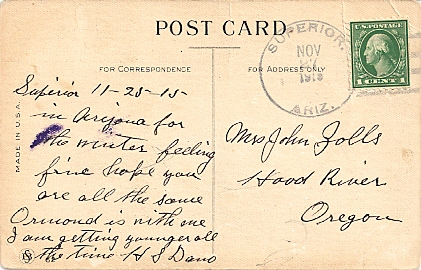 POST CARD
FOR CORRESPONDENCE
FOR ADDRESS ONLY
MADE IN U.S.A.
SUPERIOR,
NOV
ARIZ.
U.S. POSTAGE
1 CENT 1
Superior 11-25-15
in Arizona for
the winter feeling
fine hope you
are all the same
Ormond is with me
I am getting younger all
the time H S Dano
Mrs John Zolls
Hood River
Oregon